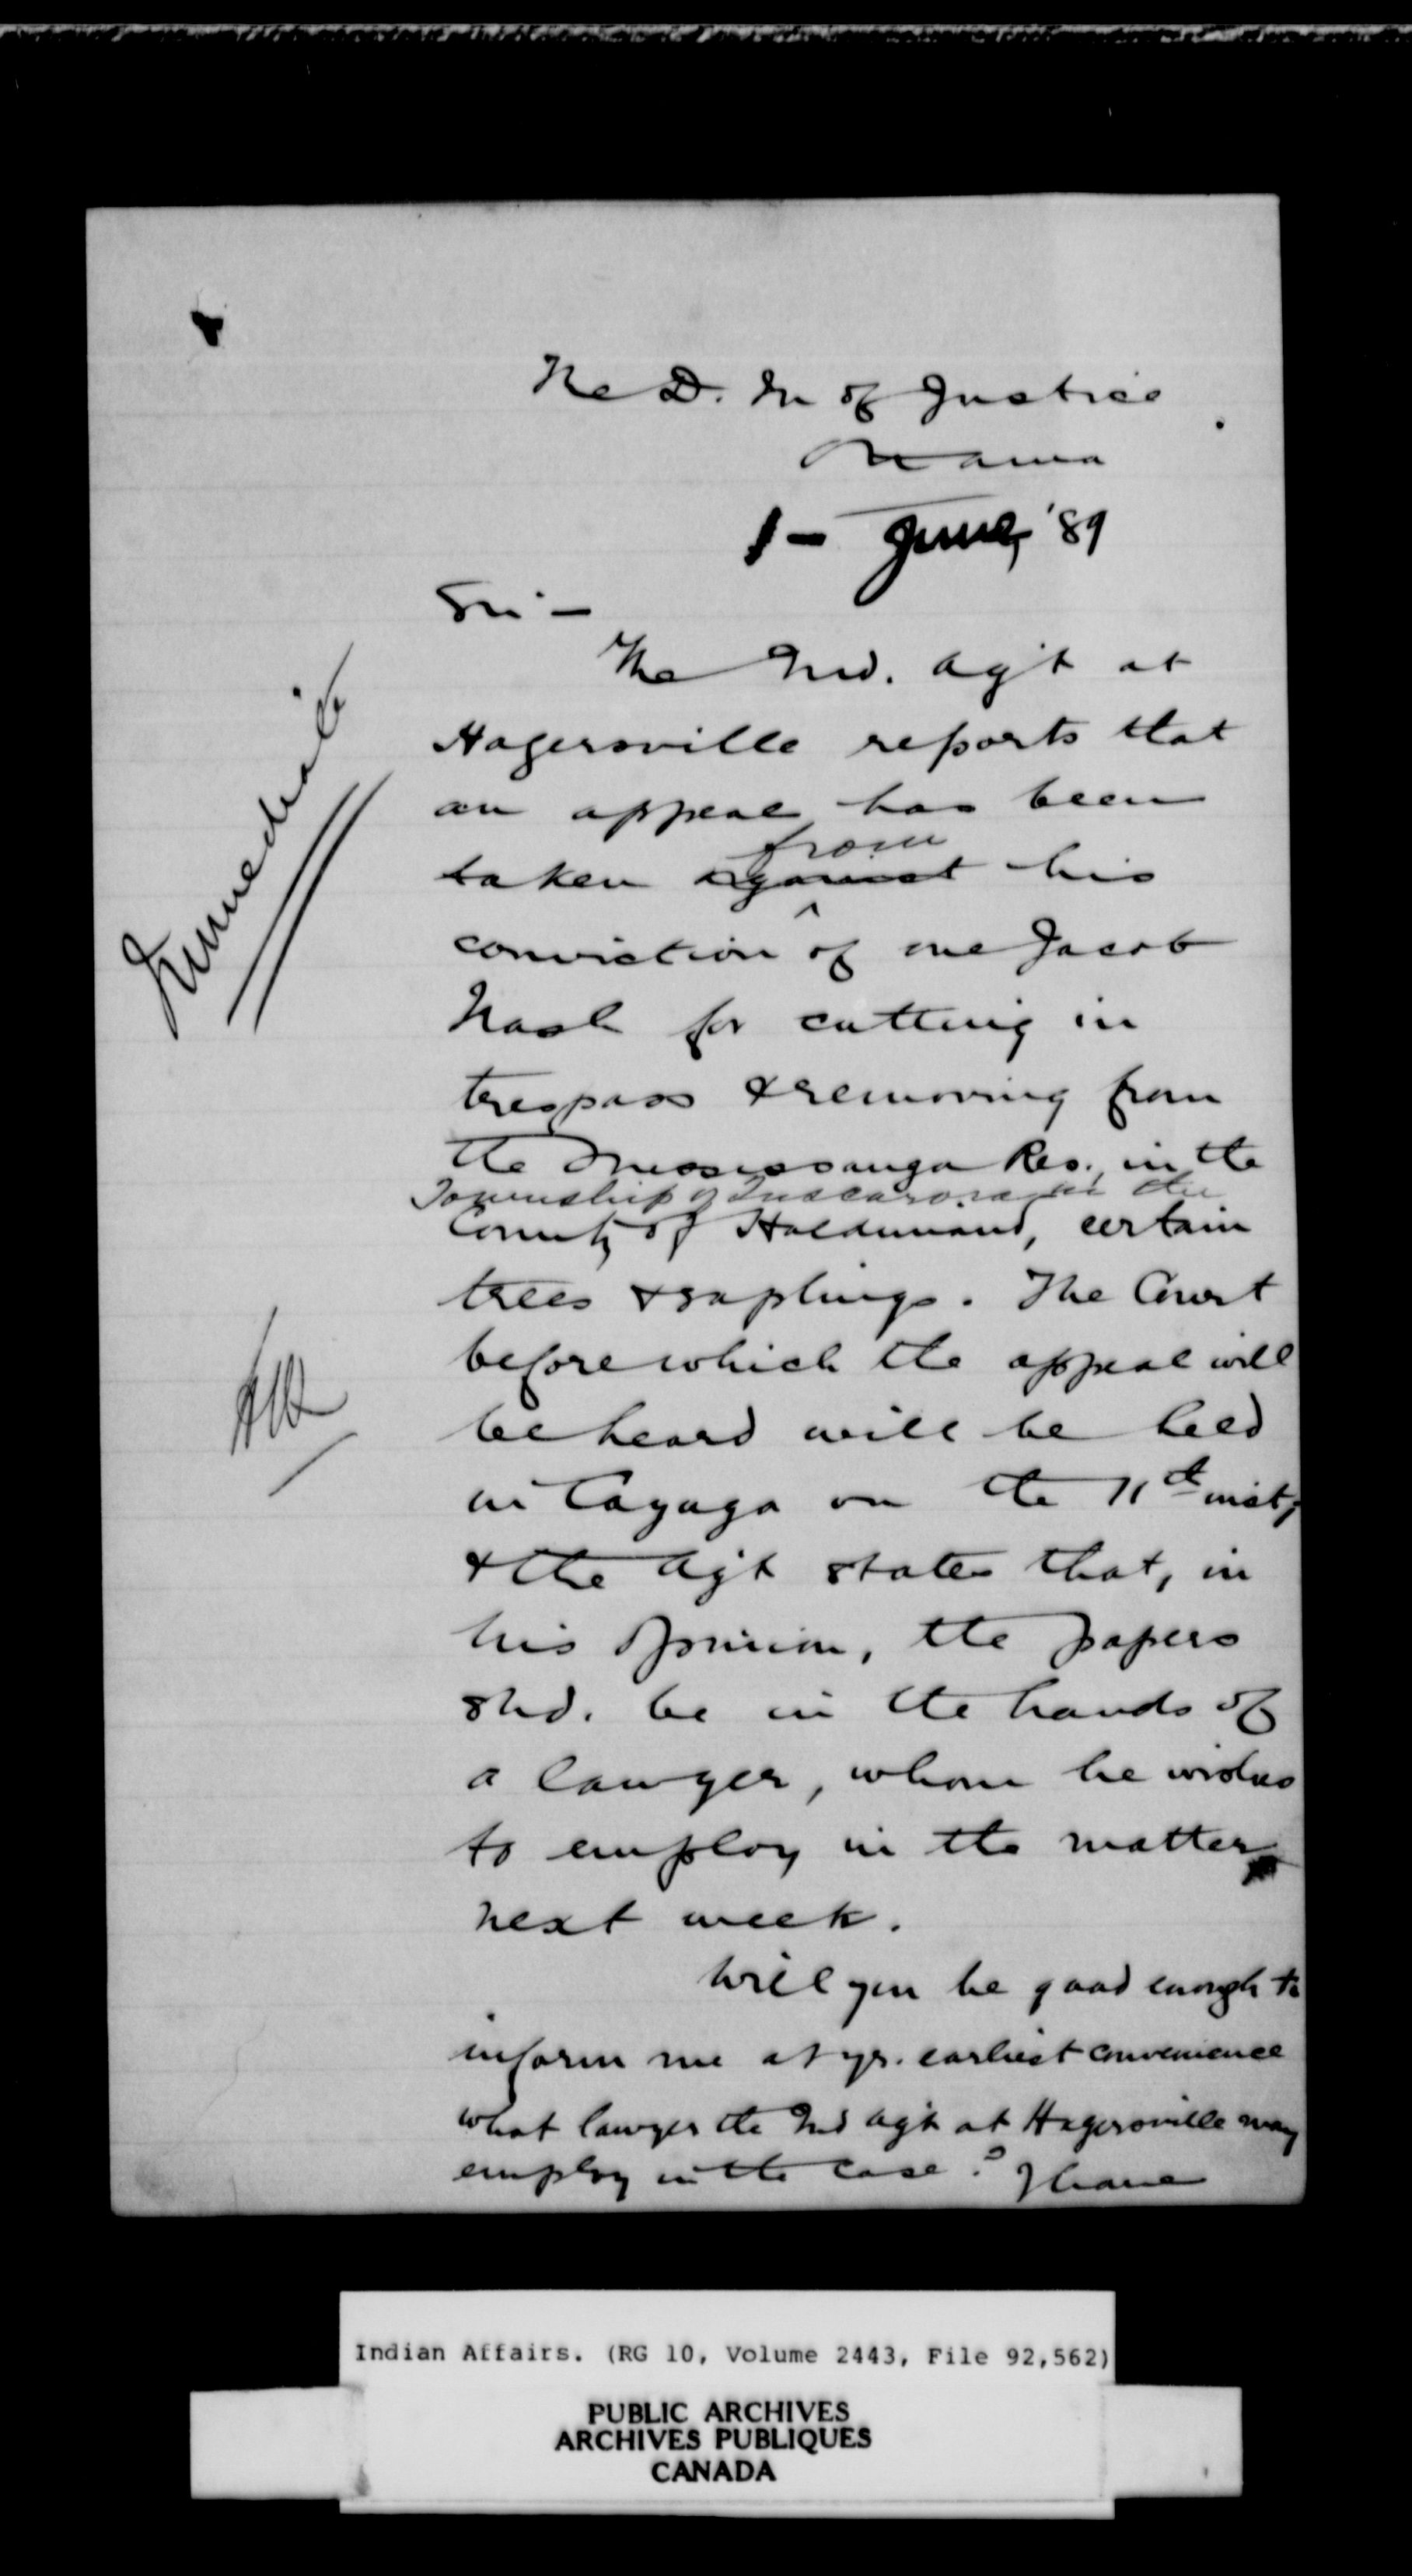 The D. M of Justice
Ottawa
1 - June, '89
Sir -
The Ind. Agt at
Hagersville reports that
an appeal has been
from
taken against his
conviction of one Jacob
Nash for cutting in
trespass & removing from
the Mississauga Res. in the
Township of Tuscarora in the
County of Haldimand, certain
trees & saplings. The Court
before which the appeal will
be heard will be held
in Cayuga on the 11th inst;
& the Agt states that, in
his opinion, the papers
shd. be in the hands of
a lawyer, whom he wishes
to employ in the matter
next week.
Will you be good enough to
inform me at yr. earliest convenience
what lawyer the Ind Agt at Hagersville may
employ in the case? I have
Immediate
Indian Affairs. (RG 10, Volume 2443, File 92,562)
PUBLIC ARCHIVES
ARCHIVES PUBLIQUES
CANADA